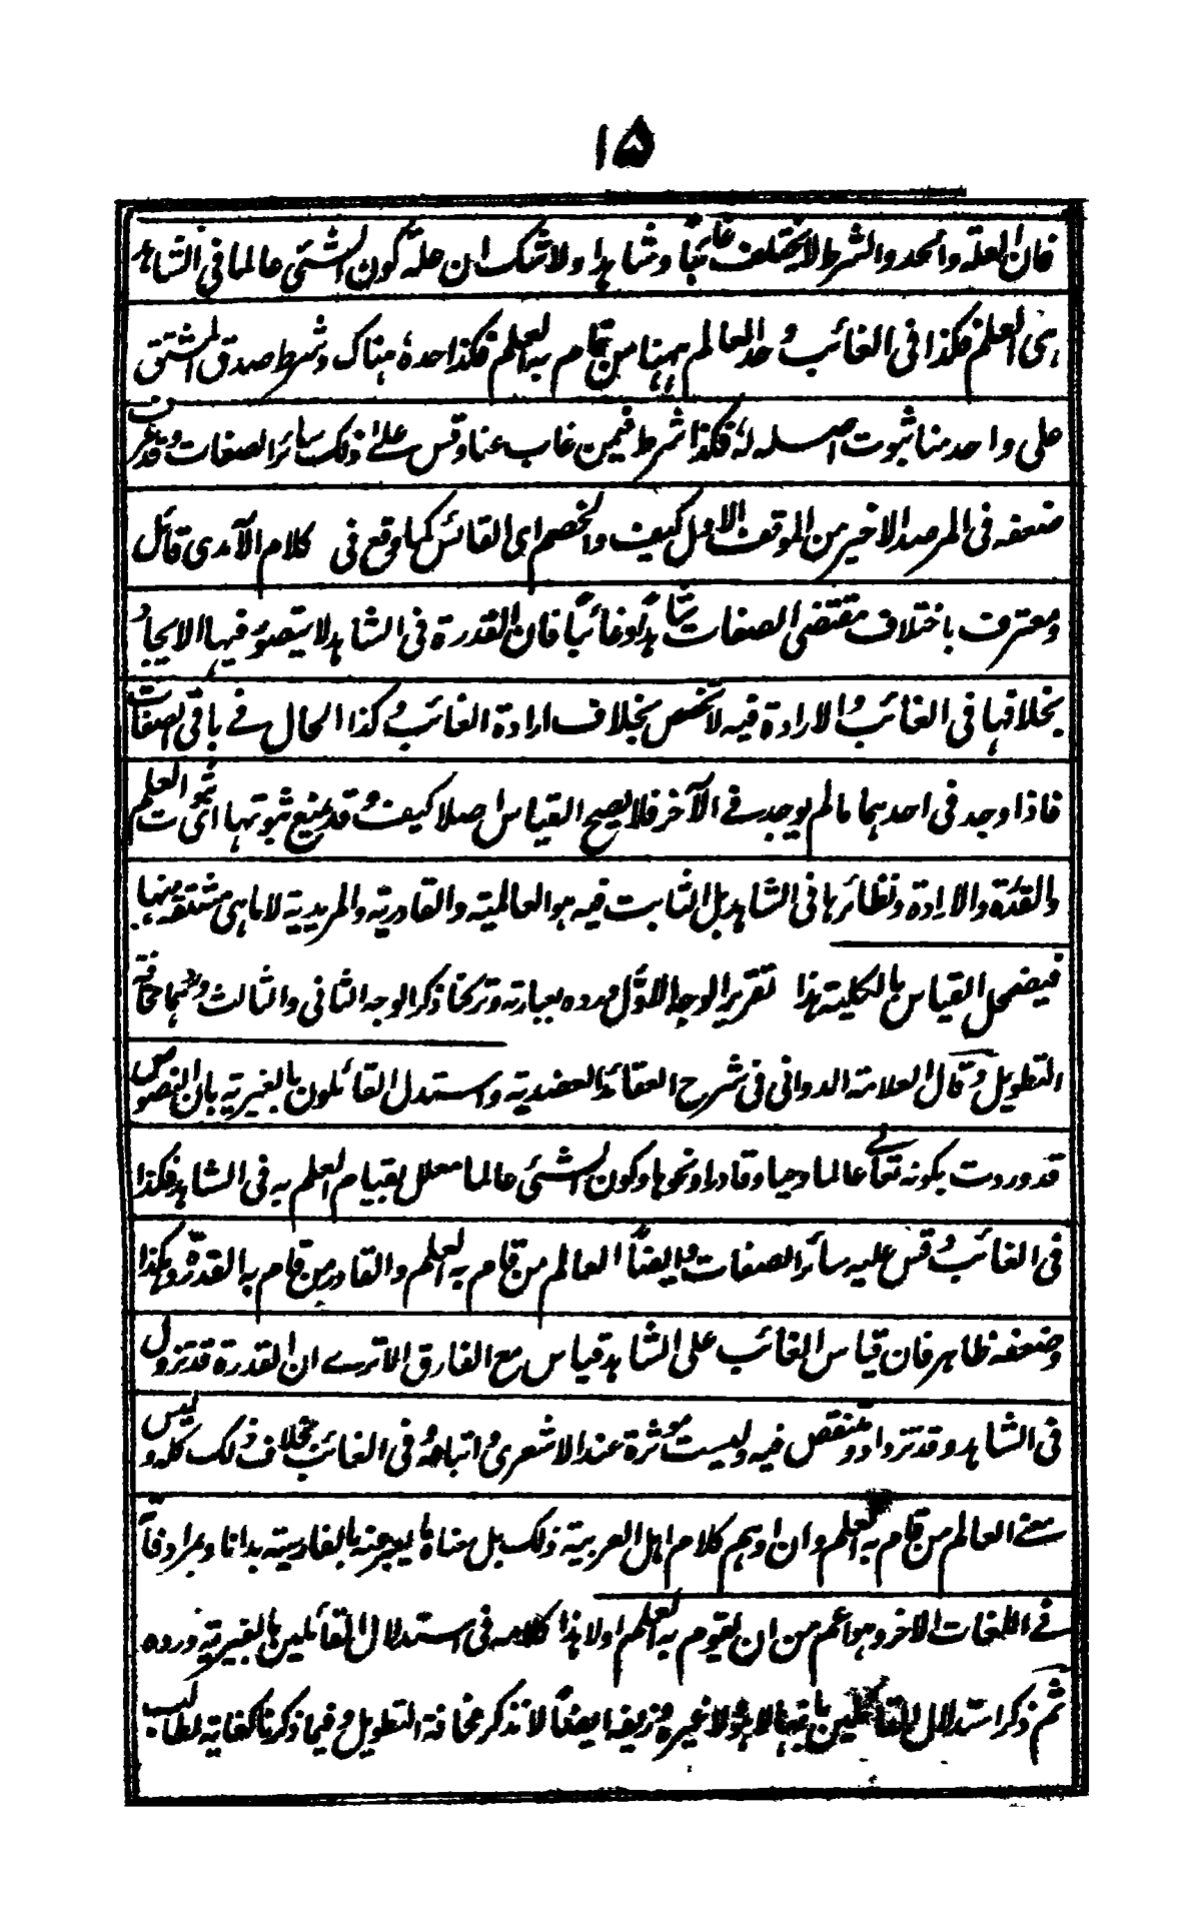 ١٥
فان العلة والحد والشرط لا يختلف غائبا وشاهدا ولا شك ان علة كون الشئ عالما فى الشاهد
هى العلم فكذا فى الغائب وحد العالم ههنا من قام به العلم فكذا حده هناك وشرط صدق المشتق
على واحد منا ثبوت اصله له فكذا شرط فيمن غاب عنا وقس على ذلك سائر الصفات وقد عرفت
ضعفه فى المرصد الاخير من الموقف الاول كيف والخصم اى القائس كما وقع فى كلام الآمدى قائل
ومعترف باختلاف مقتضى الصفات شاهدا وغائبا فان القدرة فى الشاهد لا يتصور فيها الايجاد
بخلافها فى الغائب والارادة فيه لا تخصص بخلاف ارادة الغائب وكذا الحال فے باقى الصفات
فاذا وجد فى احدهما ما لم يوجد فے الآخر فلا يصح القياس اصلا كيف وقد يمنع ثبوتها اى ثبوت العلم
والقدرة والارادة ونظائرها فى الشاهد بل الثابت فيه هو العالمية والقادرية والمريدية لا ما هى مشتقة منها
فيضمحل القياس بالكلية هذا تقرير الوجه الاول مع رده بعبارته وتركنا ذكر الوجه الثانى والثالث وردهما مخافة
التطويل وقال العلامة الدوانى فى شرح العقائد العضدية واستدل القائلون بالغيرية بان النصوص
قد وردت بكونه تعالے عالما وحيا وقادرا ونحوها وكون الشئ عالما معلل بقيام العلم به فى الشاهد فكذا
فى الغائب وقس عليه سائر الصفات وايضا العالم من قام به العلم والقادر من قام به القدرة وهكذا
وضعفه ظاهر فان قياس الغائب على الشاهد قياس مع الفارق الا ترے ان القدرة قد تزول
فى الشاهد وقد تزداد وتنقص فيه وليست مؤثرة عند الاشعرى واتباعه وفى الغائب بخلاف ذلك كله وليس
معنے العالم من قام به العلم وان اوهم كلام اهل العربية ذلك بل معناه ما يعبر عنه بالفارسية بدانا وبمرادفا
فے اللغات الاخر وهو اعم من ان يقوم به العلم اولا هذا كلامه فى استدلال القائلين بالغيرية ورده
ثم ذكر استدلال القائلين بانها لا هو ولا غيره وزيفه ايضا لا نذكر مخافة التطويل وفيما ذكرنا كفاية لطالب